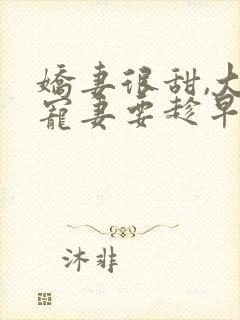 嬌妻很甜,大
寵妻要趁早
沐非